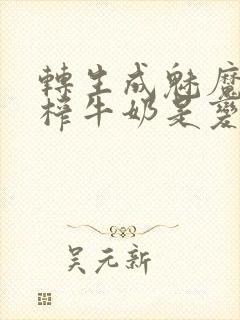 轉生成魅魔
榨牛奶是變
吴元新